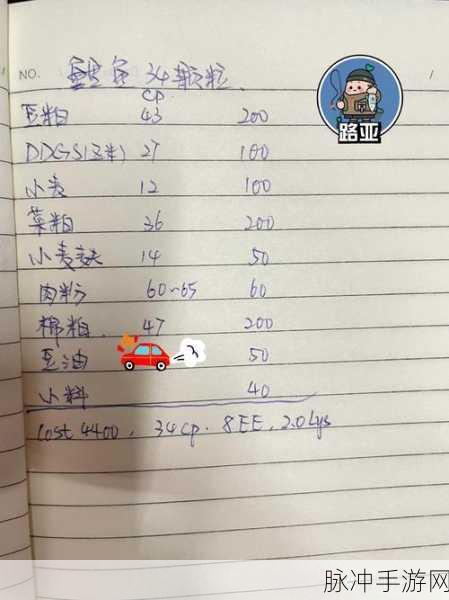 NO. 鱼 34颗粒
CP
豆粕 43 200
DDGS(玉米) 27 100
小麦 12 100
菜粕 36 200
小麦麸 14 50
肉粉 60~65 60
棉粕. 47 200
豆油 50
小料 40
Cost 4400, 34cp. 8EE, 2.0Lys
路亚
脉冲手游网